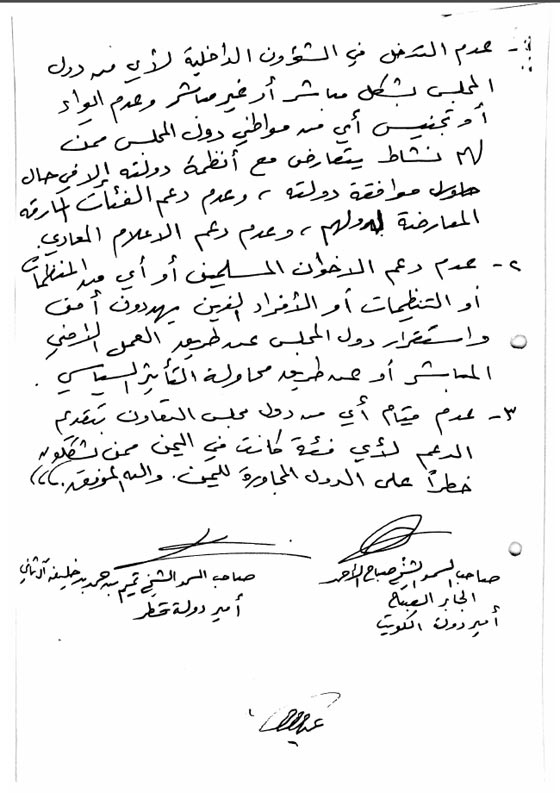 ١- عدم التدخل في الشؤون الداخلية لأي من دول
المجلس بشكل مباشر أو غير مباشر وعدم إيواء
أو تجنيس أي من مواطني دول المجلس ممن
لهم نشاط يتعارض مع أنظمة دولته إلا في حال
موافقة دولته ، وعدم دعم الفئات المارقة
المعارضة لدولهم ، وعدم دعم الاعلام المعادي.
٢- عدم دعم الاخوان المسلمين أو أي من المنظمات
أو التنظيمات أو الأفراد الذين يهددون أمن
واستقرار دول المجلس عن طريق العمل الأمني
المباشر أو عن طريق محاولة التأثير السياسي .
٣- عدم قيام أي من دول مجلس التعاون بتقديم
الدعم لأي فئة كانت في اليمن ممن يشكلون
خطراً على الدول المجاورة لليمن. والله الموفق ،،،
صاحب السمو الشيخ صباح الأحمد
الجابر الصباح
أمير دولة الكويت
صاحب السمو الشيخ تميم بن حمد بن خليفة آل ثاني
أمير دولة قطر